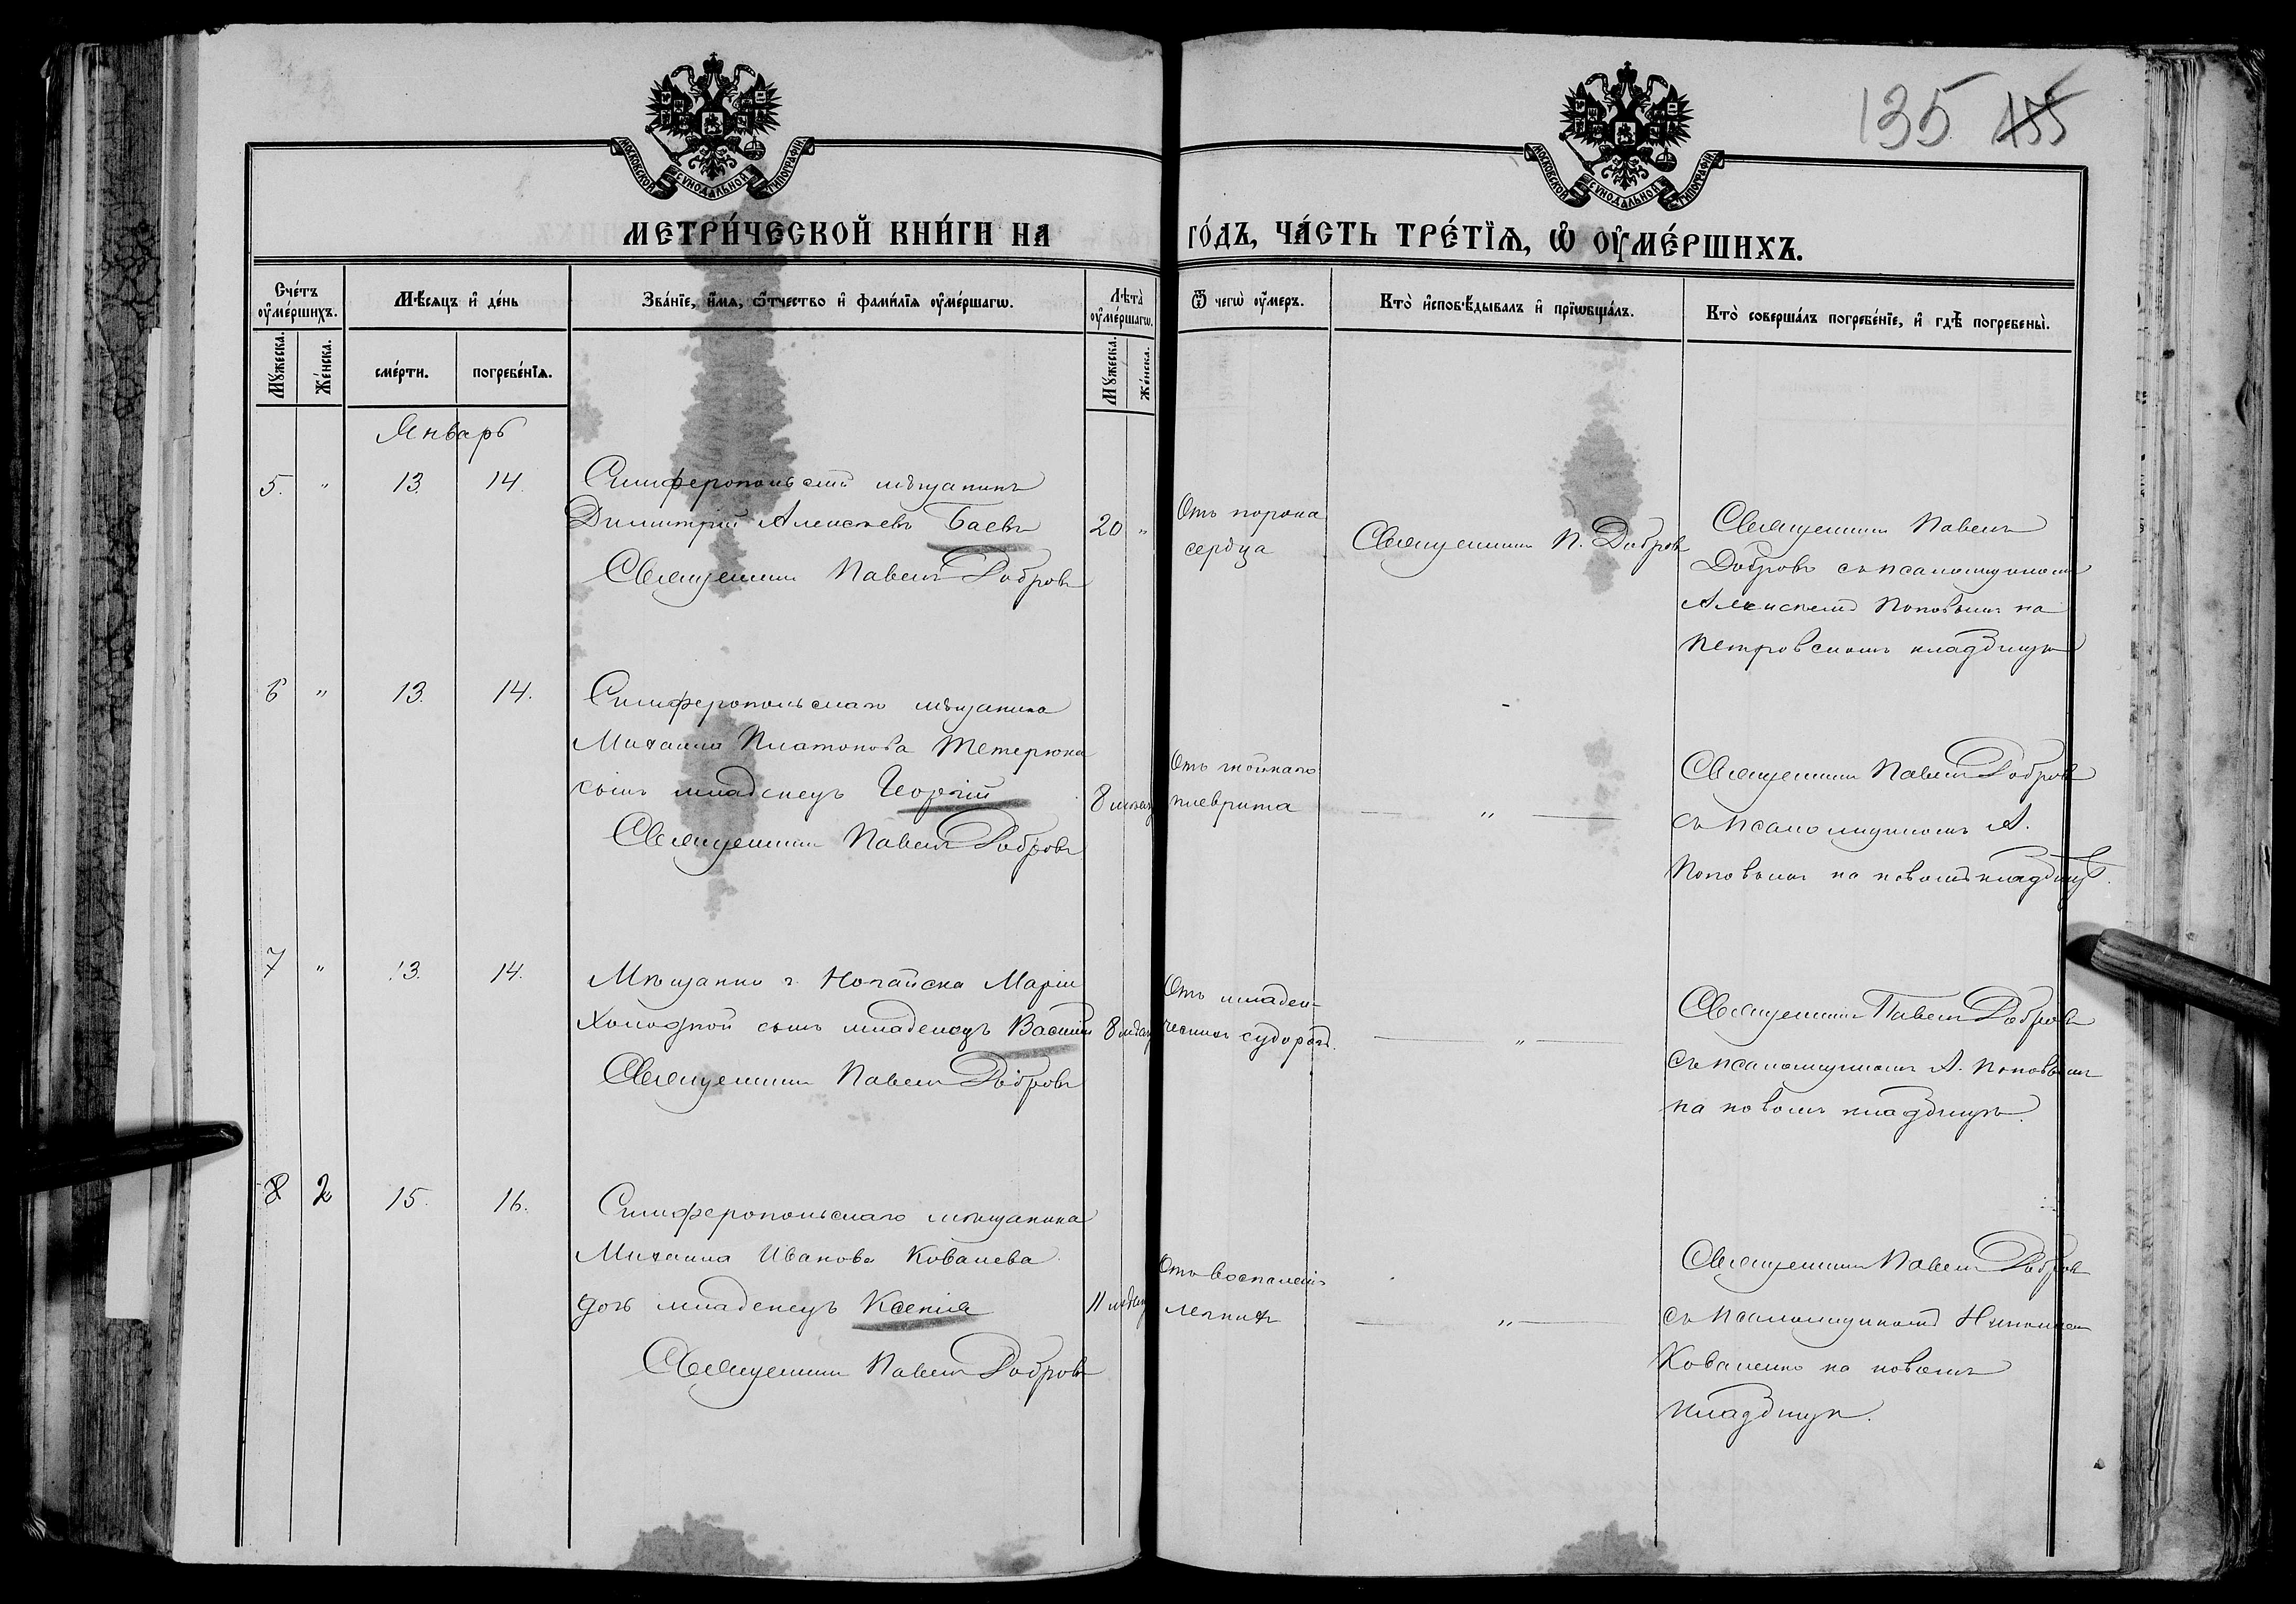 135 155
МОСКОВСКОЙ СѴНОДАЛЬНОЙ ТИПОГРАФІИ
МОСКОВСКОЙ СѴНОДАЛЬНОЙ ТИПОГРАФІИ
МЕТРИ́ЧЕСКОЙ КНИ́ГИ НА ГО́ДЪ, ЧА́СТЬ ТРЕ́ТЇѦ, Ѡ҆ ОУ҆МЕ́РШИХЪ.
Сче́тъ оу҆ме́ршихъ.
Мѣ́сяцъ и҆ де́нь
Зва́нїе, и҆́мя, ѻ҆́тчество и҆ фами́лїя оу҆ме́ршагѡ.
Лѣта̀ оу҆ме́ршагѡ.
Ѿ чегѡ̀ оу҆́меръ.
Кто̀ и҆сповѣ́дывалъ и҆ прїѡбща́лъ.
Кто̀ соверша́лъ погребе́нїе, и҆ гдѣ̀ погребены̀.
Мꙋ́жеска.
Же́нска.
сме́рти.
погребе́нїѧ.
Мꙋ́жеска.
Же́нска.
Январь
5. " 13. 14.
Симферопольскій мѣщанинъ
Димитрій Алексѣевъ Баевъ
Священникъ Павелъ Добровъ
20 "
Отъ порока
сердца
Священникъ П. Добровъ
Священникъ Павелъ
Добровъ съ псаломщикомъ
Алексѣемъ Поповымъ на
Петровскомъ кладбищѣ
6 " 13. 14.
Симферопольскаго мѣщанина
Михаила Платонова Тетерюка
сынъ младенецъ Георгій
Священникъ Павелъ Добровъ
8 мѣсяц
Отъ гнойнаго
плеврита
"
Священникъ Павелъ Добровъ
съ псаломщикомъ А.
Поповымъ на новомъ кладбищѣ.
7 " 13. 14.
Мѣщанки г. Ногайска Маріи
Холодной сынъ младенецъ Василій
Священникъ Павелъ Добровъ
8 мѣсяц
Отъ младен-
ческихъ судорогъ.
"
Священникъ Павелъ Добровъ
съ псаломщикомъ А. Поповымъ
на новомъ кладбищѣ.
8 2 15. 16.
Симферопольскаго мѣщанина
Михаила Иванова Ковалева
дочь младенецъ Ксенія
Священникъ Павелъ Добровъ
11 мѣсяц
Отъ воспаленія
легкихъ
"
Священникъ Павелъ Добровъ
съ псаломщикомъ Николаемъ
Коваленко на новомъ
кладбищѣ.